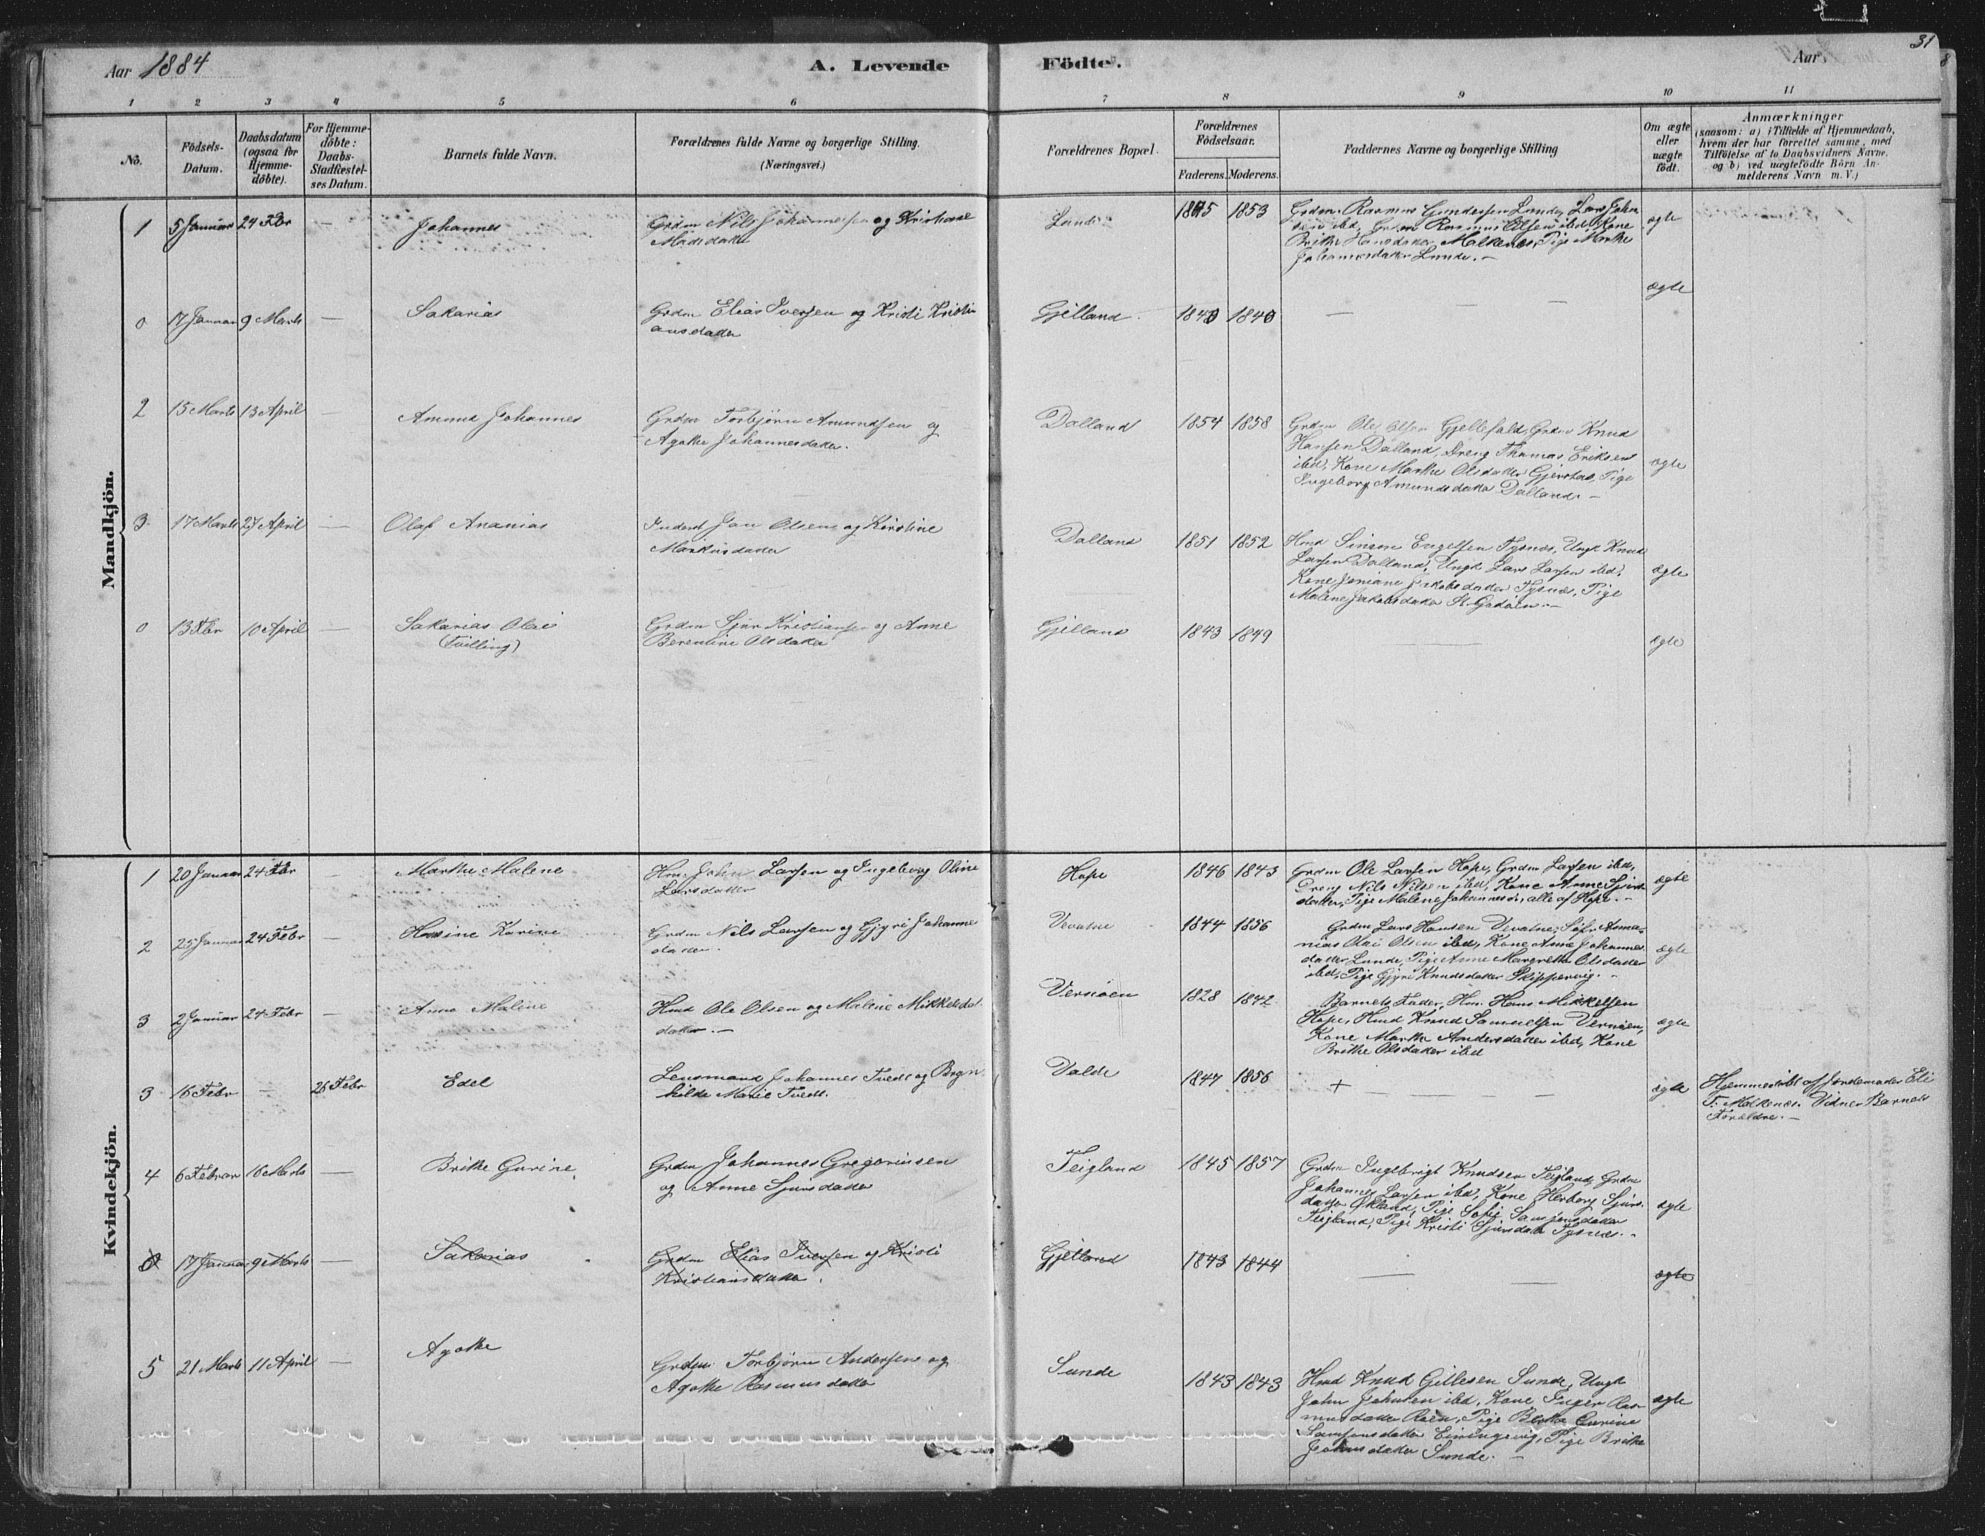 Aar 1884
A. Levende Födte.
Aar
31
1 2 3 4 5 6 7 8 9 10 11
No.
Födsels-Datum.
Daabsdatum (ogsaa for Hjemme-döbte).
For Hjemme-döbte: Daabs-Stadfæstel-ses Datum.
Barnets fulde Navn.
Forældrenes fulde Navne og borgerlige Stilling. (Næringsvei.)
Forældrenes Bopæl.
Forældrenes Födselsaar.
Faderens. Moderens.
Faddernes Navne og borgerlige Stilling
Om ægte eller uægte födt.
Anmærkninger
(saasom: a) i Tilfælde af Hjemmedaab,
hvem der har forrettet samme, med
Tilföielse af to Daabsvidners Navne,
og b) ved uægtefödte Börn An-
melderens Navn m. V.)
Mandkjön.
1 5 Januar 24 Febr — Johannes
Grdm Nils Johannesen og Kristiane
Madsdatter
Lunde 1845 1853
Grdm. Rasmus Gundersen Lunde, Lars Johan
sen ibd, Grdm Rasmus Olsen ibd, Kone
Brithe Hansdatter Malkenes, Pige Marthe
Johannesdatter Lunde. —
ægte
0 17 Januar 9 Marts — Sakarias
Grdm Elias Iversen og Kristi Kristi
ansdatter
Gjelland 1840 1840 — — — ægte
2 15 Marts 13 April — Ammu Johannes
Grdm Torbjörn Amundsen og
Agathe Johannesdatter.
Dalland 1854 1858
Grdm Ole Olsen Gjellefald, Grdm Knud
Hansen Dalland, Dreng Thomas Eriksen
ibd, Kone Marthe Olsdatter Gjerstad, Pige
Ingeborg Amundsdatter Dalland. —
ægte
3 17 Marts 27 April — Olaf Ananias
Inderst Jan Olsen og Kirstine
Markusdatter
Dalland 1851 1852
Hmd Simon Engelsen Tysnes, Ungk Knud
Larsen Dalland, Ungk Lars Larsen ibd,
Kone Joniane Jakobsdatter Tysnes, Pige
Malene Jakobsdatter St. Godöen. —
ægte
0 13 Febr 10 April — Sakarias Olai
(Tvilling)
Grdm Sjur Kristiansen og Anne
Berentine Olsdatter
Gjelland 1843 1849 — ægte
Kvindekjön.
1 20 Januar 24 Febr — Marthe Malene
Hm. John Larsen og Ingeborg Oline
Larsdatter
Hope 1846 1843
Grdm Ole Larsen Hope, Grdm Larsen ibd,
Dreng Nils Nilsen ibd, Kone Anne Sjurs
datter, Pige Malene Johannesd., alle af Hope. —
ægte
2 25 Januar 24 Febr — Hansine Karine
Grdm Nils Larsen og Gjyri Johannes
datter.
Vevatne 1844 1856
Grdm Lars Hansen Vevatne, Selv. Anna-
nias Olai Olsen ibd, Kone Anne Johannes
datter Lunde, Pige Anne Margrethe Olsdatter
ibd, Pige Gjyri Knudsdatter Skippervig. —
ægte
3 2 Januar 24 Febr — Anne Malene
Hmd Ole Olsen og Malene Mikkelsd
datter. —
Vernöen 1828 1842
Barnets Fader, Hm. Hans Mikkelsen
Hope, Hmd Knud Samuelsen Vernöen,
Kone Marthe Andersdatter ibd, Kone
Brithe Olsdatter ibd
ægte
3 16 Febr — 26 Febr Edel
Lensmand Johannes Tvedt og Bogn
hilde Marie Tvedt.
Valde 1847 1856 + — — — ægte
Hjemmedöbt af Jordemoder Eli
T. Malkenes. Vidner Barnets
Forældre. —
4 6 Februar 16 Marts — Brithe Gurine
Grdm Johannes Gregoriusen
og Anne Sjursdatter
Teigland 1845 1857
Grdm Ingebrigt Knudsen Teigland, Grdm
Johannes Larsen ibd, Kone Herborg Sjurs
datter Økland, Pige Sofi Samsonsdatter
Teigland, Pige Kristi Sjursdatt Tysnes. —
ægte
0 17 Januar 9 Marts — Sakarias
Grdm Elias Iversen og Kristi
Kristiansdatter.
Gjelland 1843 1844 — — ægte
5 21 Marts 11 April — Agathe
Grdm. Torbjörn Andersen og
Agathe Rasmusdatter
Sunde 1843 1843
Hmd Knud Gillesen Sunde, Ungk
John Johnsen ibd, Kone Inger Ras
musdatter Raen, Pige Brithe Gurine
Samsonsdatter Einingevig, Pige Brithe
Johnsdatter Sunde. —
ægte